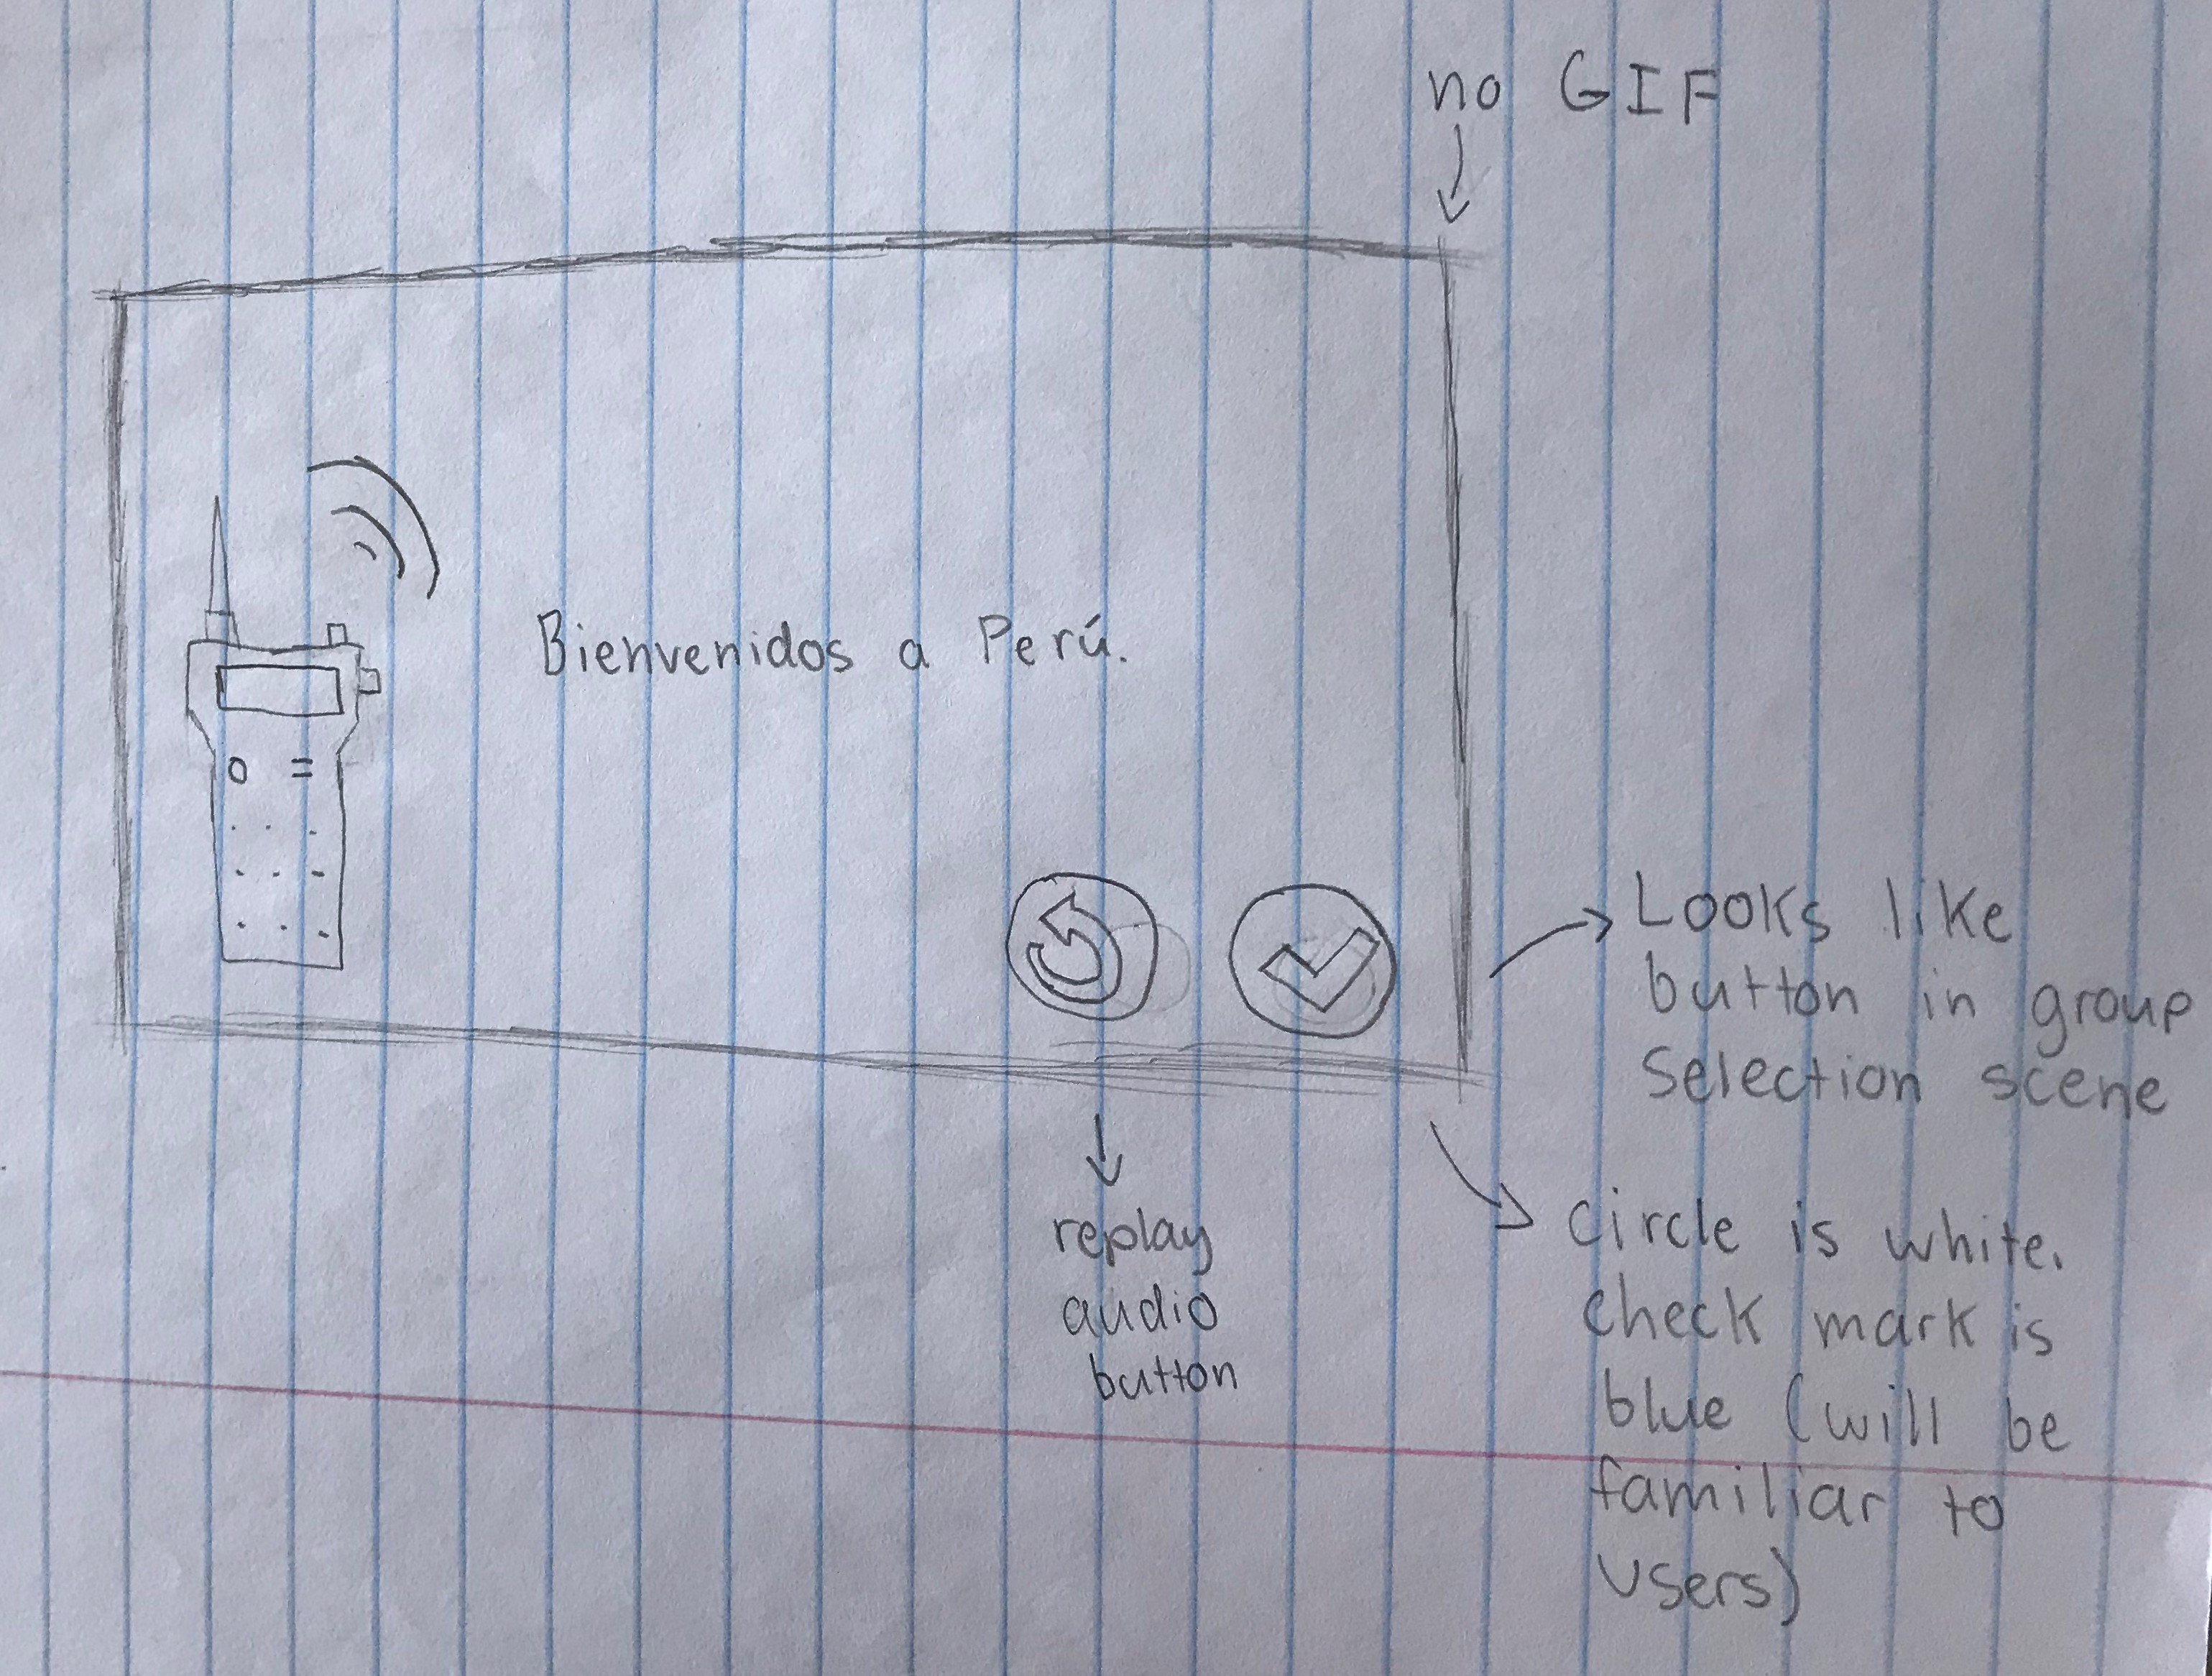 no GIF
Bienvenidos a Perú.
Looks like
button in group
Selection scene
replay
audio
button
Circle is white.
Check mark is
blue (will be
familiar to
users)